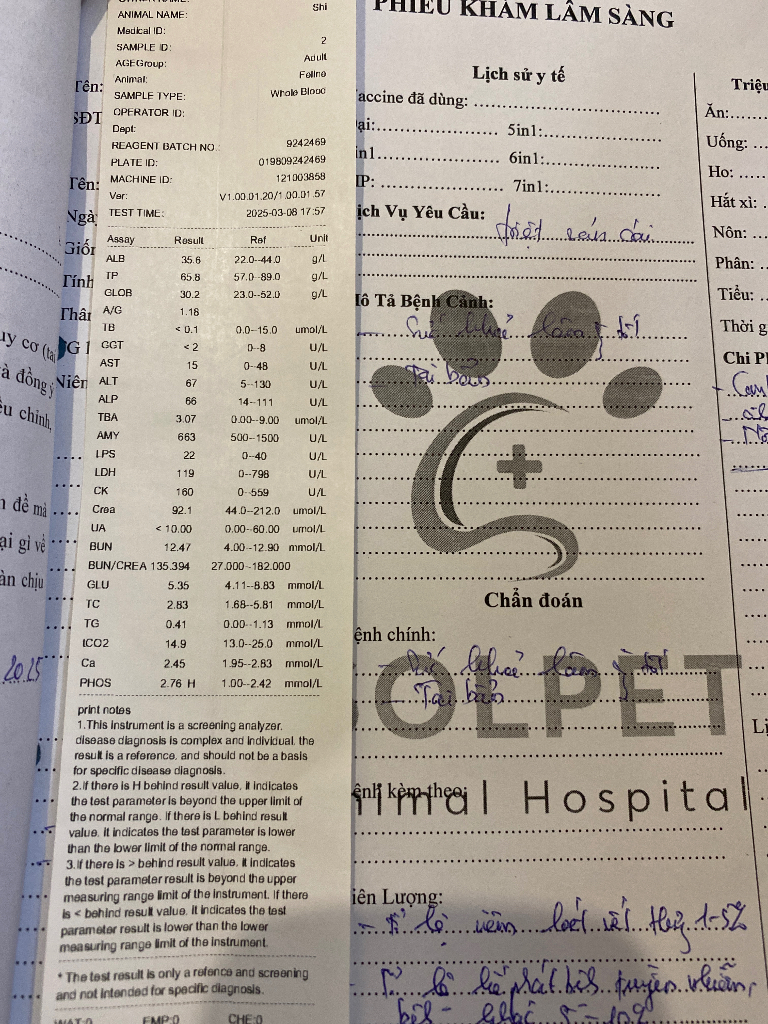 ANIMAL NAME: Shi
Medical ID:
SAMPLE ID: 2
AGEGroup: Adult
Animal: Feline
SAMPLE TYPE: Whole Blood
OPERATOR ID:
Dept:
REAGENT BATCH NO.: 9242469
PLATE ID: 019809242469
MACHINE ID: 121003858
Ver: V1.00.01.20/1.00.01.57
TEST TIME: 2025-03-08 17:57
Assay Result Ref Unit
ALB 35.6 22.0--44.0 g/L
TP 65.8 57.0--89.0 g/L
GLOB 30.2 23.0--52.0 g/L
A/G 1.18
TB < 0.1 0.0--15.0 umol/L
GGT < 2 0--8 U/L
AST 15 0--48 U/L
ALT 67 5--130 U/L
ALP 66 14--111 U/L
TBA 3.07 0.00--9.00 umol/L
AMY 663 500--1500 U/L
LPS 22 0--40 U/L
LDH 119 0--798 U/L
CK 160 0--559 U/L
Crea 92.1 44.0--212.0 umol/L
UA < 10.00 0.00--60.00 umol/L
BUN 12.47 4.00--12.90 mmol/L
BUN/CREA 135.394 27.000--182.000
GLU 5.35 4.11--8.83 mmol/L
TC 2.83 1.68--5.81 mmol/L
TG 0.41 0.00--1.13 mmol/L
tCO2 14.9 13.0--25.0 mmol/L
Ca 2.45 1.95--2.83 mmol/L
PHOS 2.76 H 1.00--2.42 mmol/L
print notes
1.This instrument is a screening analyzer.
disease diagnosis is complex and individual. the
result is a reference. and should not be a basis
for specific disease diagnosis.
2.If there is H behind result value. it indicates
the test parameter is beyond the upper limit of
the normal range. if there is L behind result
value. it indicates the test parameter is lower
than the lower limit of the normal range.
3.if there is > behind result value. it indicates
the test parameter result is beyond the upper
measuring range limit of the instrument. If there
is < behind result value. it indicates the test
parameter result is lower than the lower
measuring range limit of the instrument.
* The test result is only a refence and screening
and not intended for specific diagnosis.
WAT:0 EMP:0 CHE:0
PHIẾU KHÁM LÂM SÀNG
Lịch sử y tế
accine đã dùng:
ại: 5in1:
in1 6in1:
IP: 7in1:
ịch Vụ Yêu Cầu: triệt sản cái
ô Tả Bệnh Cảnh:
Sức khoẻ lâm
Tai bẩn
Chẩn đoán
ệnh chính:
Sức khoẻ lâm
Tai bẩn
OLPET
nimal Hospital
ệnh kèm theo:
iên Lượng:
- Tỉ lệ viêm loét vết 1-5%
Tỉ lệ tái phát bệnh
5-10%
Tên:
SĐT
Tên:
Ngà
Giốn
Tính
Thâ
Niên
uy cơ (tai
à đồng ý
ều chỉnh,
n đề mà
ại gì về
àn chịu
2025
Triệu
Ăn:
Uống:
Ho:
Hắt xì:
Nôn:
Phân:
Tiểu:
Thời g
Chi Ph